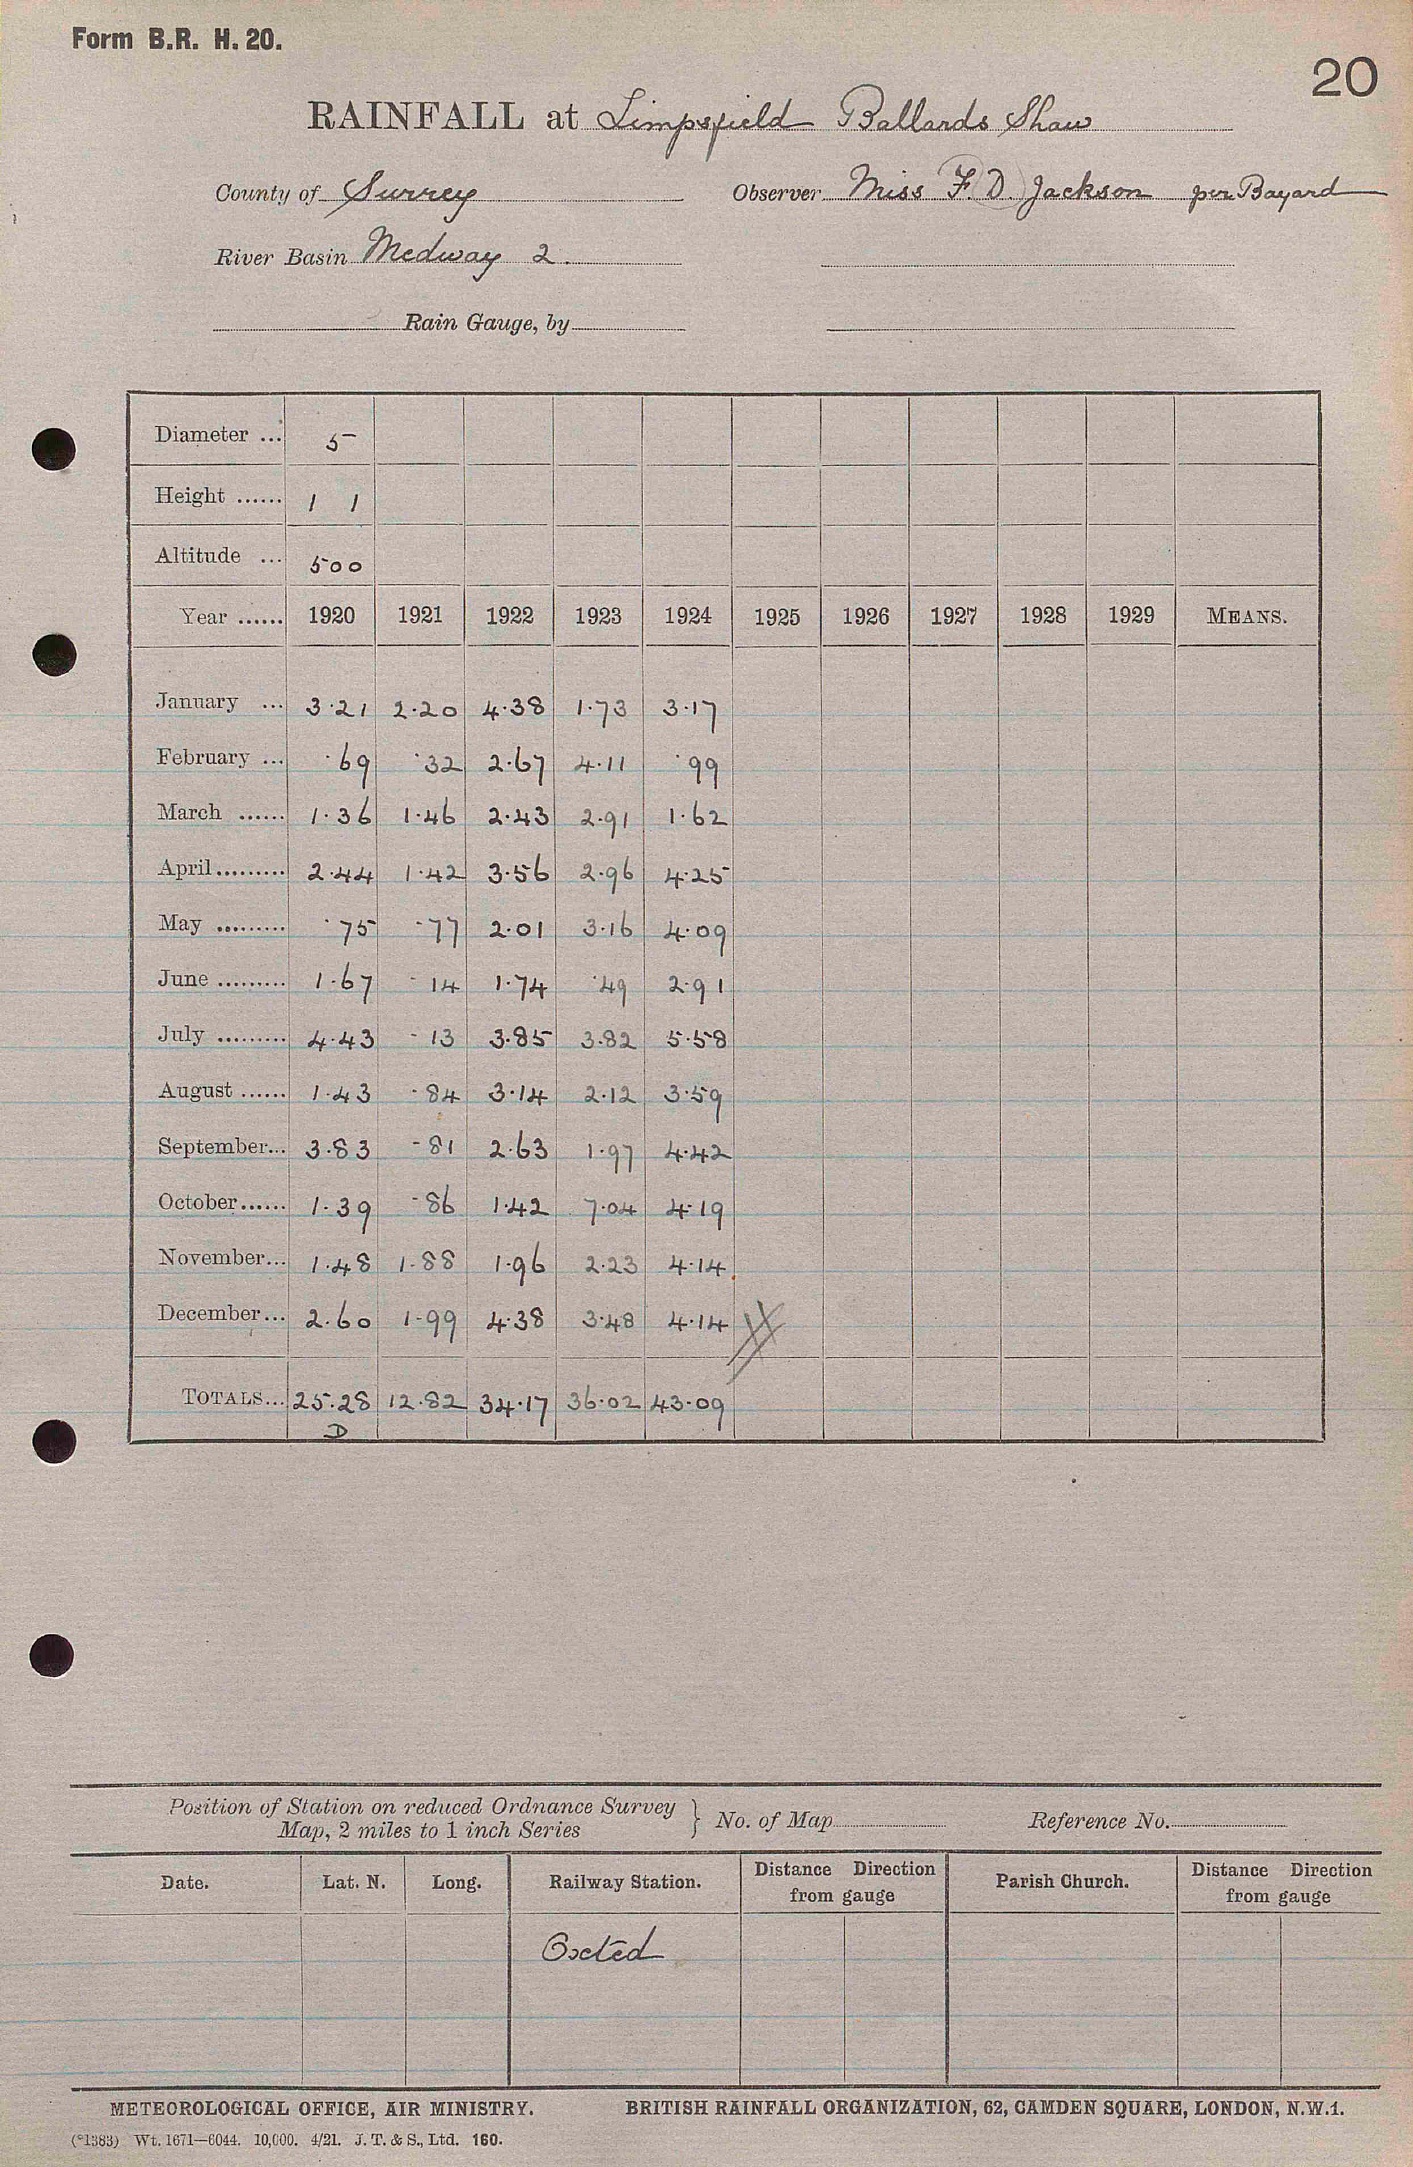 Form B.R. H. 20.
20
RAINFALL at Limpsfield Ballards Shaw
County of Surrey Observer Miss F. D. Jackson per Bayard
River Basin Medway 2.
Rain Gauge, by
Diameter ... 5
Height ...... 1 1
Altitude ... 500
Year ...... 1920 1921 1922 1923 1924 1925 1926 1927 1928 1929 MEANS.
January ... 3.21 2.20 4.38 1.73 3.17
February ... .69 .32 2.67 4.11 .99
March ...... 1.36 1.46 2.43 2.91 1.62
April ......... 2.44 1.42 3.56 2.96 4.25
May ......... .75 .77 2.01 3.16 4.09
June ......... 1.67 .14 1.74 .49 2.91
July ......... 4.43 .13 3.85 3.82 5.58
August ...... 1.43 .84 3.14 2.12 3.59
September... 3.83 .81 2.63 1.97 4.42
October...... 1.39 .86 1.42 7.04 4.19
November... 1.48 1.88 1.96 2.23 4.14
December... 2.60 1.99 4.38 3.48 4.14
TOTALS... 25.28 12.82 34.17 36.02 43.09
D
Position of Station on reduced Ordnance Survey
Map, 2 miles to 1 inch Series } No. of Map Reference No.
Date. Lat. N. Long. Railway Station. Distance Direction from gauge Parish Church. Distance Direction from gauge
Oxted
METEOROLOGICAL OFFICE, AIR MINISTRY. BRITISH RAINFALL ORGANIZATION, 62, CAMDEN SQUARE, LONDON, N.W.1.
(*1383) Wt. 1671—6044. 10,000. 4/21. J. T. & S., Ltd. 160.